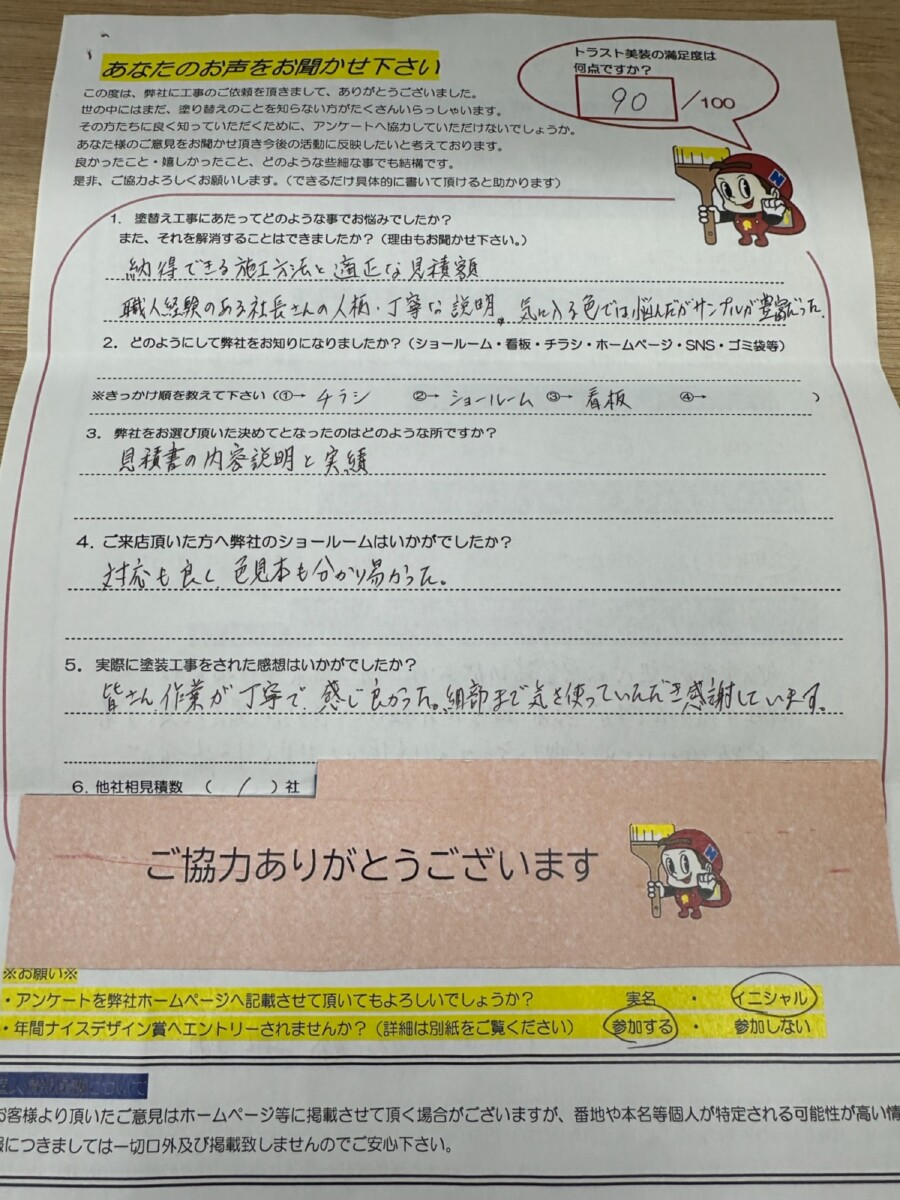 あなたのお声をお聞かせ下さい
トラスト美装の満足度は
何点ですか？
90 /100
この度は、弊社に工事のご依頼を頂きまして、ありがとうございました。
世の中にはまだ、塗り替えのことを知らない方がたくさんいらっしゃいます。
その方たちに良く知っていただくために、アンケートへ協力していただけないでしょうか。
あなた様のご意見をお聞かせ頂き今後の活動に反映したいと考えております。
良かったこと・嬉しかったこと、どのような些細な事でも結構です。
是非、ご協力よろしくお願いします。（できるだけ具体的に書いて頂けると助かります）
1. 塗替え工事にあたってどのような事でお悩みでしたか？
また、それを解消することはできましたか？（理由もお聞かせ下さい。）
納得できる施工方法と適正な見積額
職人経験のある社長さんの人柄・丁寧な説明。気に入る色では悩んだがサンプルが豊富だった。
2. どのようにして弊社をお知りになりましたか？（ショールーム・看板・チラシ・ホームページ・SNS・ゴミ袋等）
※きっかけ順を教えて下さい（①→ チラシ ②→ ショールーム ③→ 看板 ④→ ）
3. 弊社をお選び頂いた決めてとなったのはどのような所ですか？
見積書の内容説明と実績
4. ご来店頂いた方へ弊社のショールームはいかがでしたか？
対応も良く、色見本も分かり易かった。
5. 実際に塗装工事をされた感想はいかがでしたか？
皆さん、作業が丁寧で、感じ良かった。細部まで気を使っていただき感謝しています。
6. 他社相見積数 （ 1 ）社
ご協力ありがとうございます
※お願い※
・アンケートを弊社ホームページへ記載させて頂いてもよろしいでしょうか？ 実名 ・ イニシャル
・年間ナイスデザイン賞へエントリーされませんか？（詳細は別紙をご覧ください） 参加する ・ 参加しない
お客様より頂いたご意見はホームページ等に掲載させて頂く場合がございますが、番地や本名等個人が特定される可能性が高い情
報につきましては一切口外及び掲載致しませんのでご安心下さい。